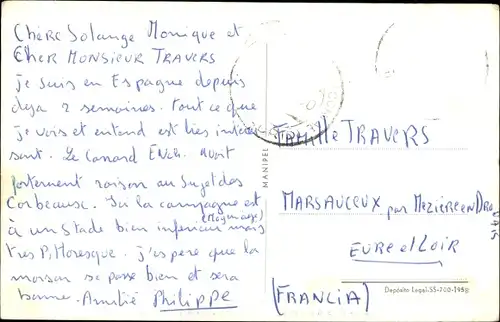 Chère Solange Monique et
Cher MONSIEUR TRAVERS
je suis en Espagne depuis
deja 2 semaines. tout ce que
je vois et entend est très intéres
sant. Le Canard Ench. avait
fortement raison au sujet des
Corbeaux. Ici la campagne est
à un stade bien inférieur mais
(Moyenage)
très P. Moresque. j'espère que la
moison se passe bien et sera
bonne. Amitié PHILIPPE
MANIPEL
FAMILLE TRAVERS
MARSAUCEUX par MEZIERE EN DRO
UAIS
EURE et LOIR
(FRANCIA)
Depósito Legal-SS-200-1958